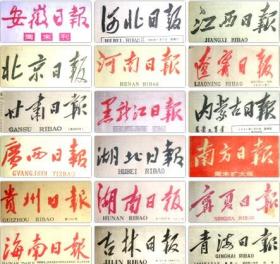 安徽日报
周末刊
河北日報
HEBEI RIBAO
江西日報
JIANGXI RIBAO
北京日报
河南日報
HENAN RIBAO
遼寧日報
LIAONING RIBAO
甘肅日報
GANSU RIBAO
黑龍江日報
内蒙古日報
廣西日報
GVANGJSIH YIZBAU
湖北日報
HUBEI RIBAO
南方日報
周末扩大版
贵州日報
GUIZHOU RIBAO
湖南日報
HUNAN RIBAO
寧夏日報
NINGXIA RIBAO
海南日报
吉林日報
JILIN RIBAO
青海日报
QINGHAI RIBAO